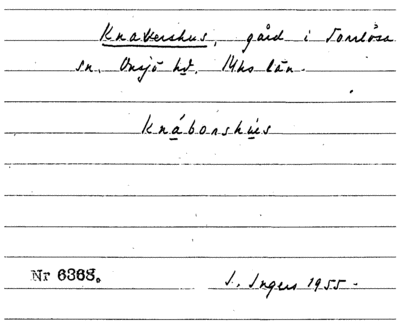 Knavershus, gård i Torrlösa
sn. Onsjö hd. Mhs län.
Knáborshús
Nr 6368.
I. Ingers 1955.